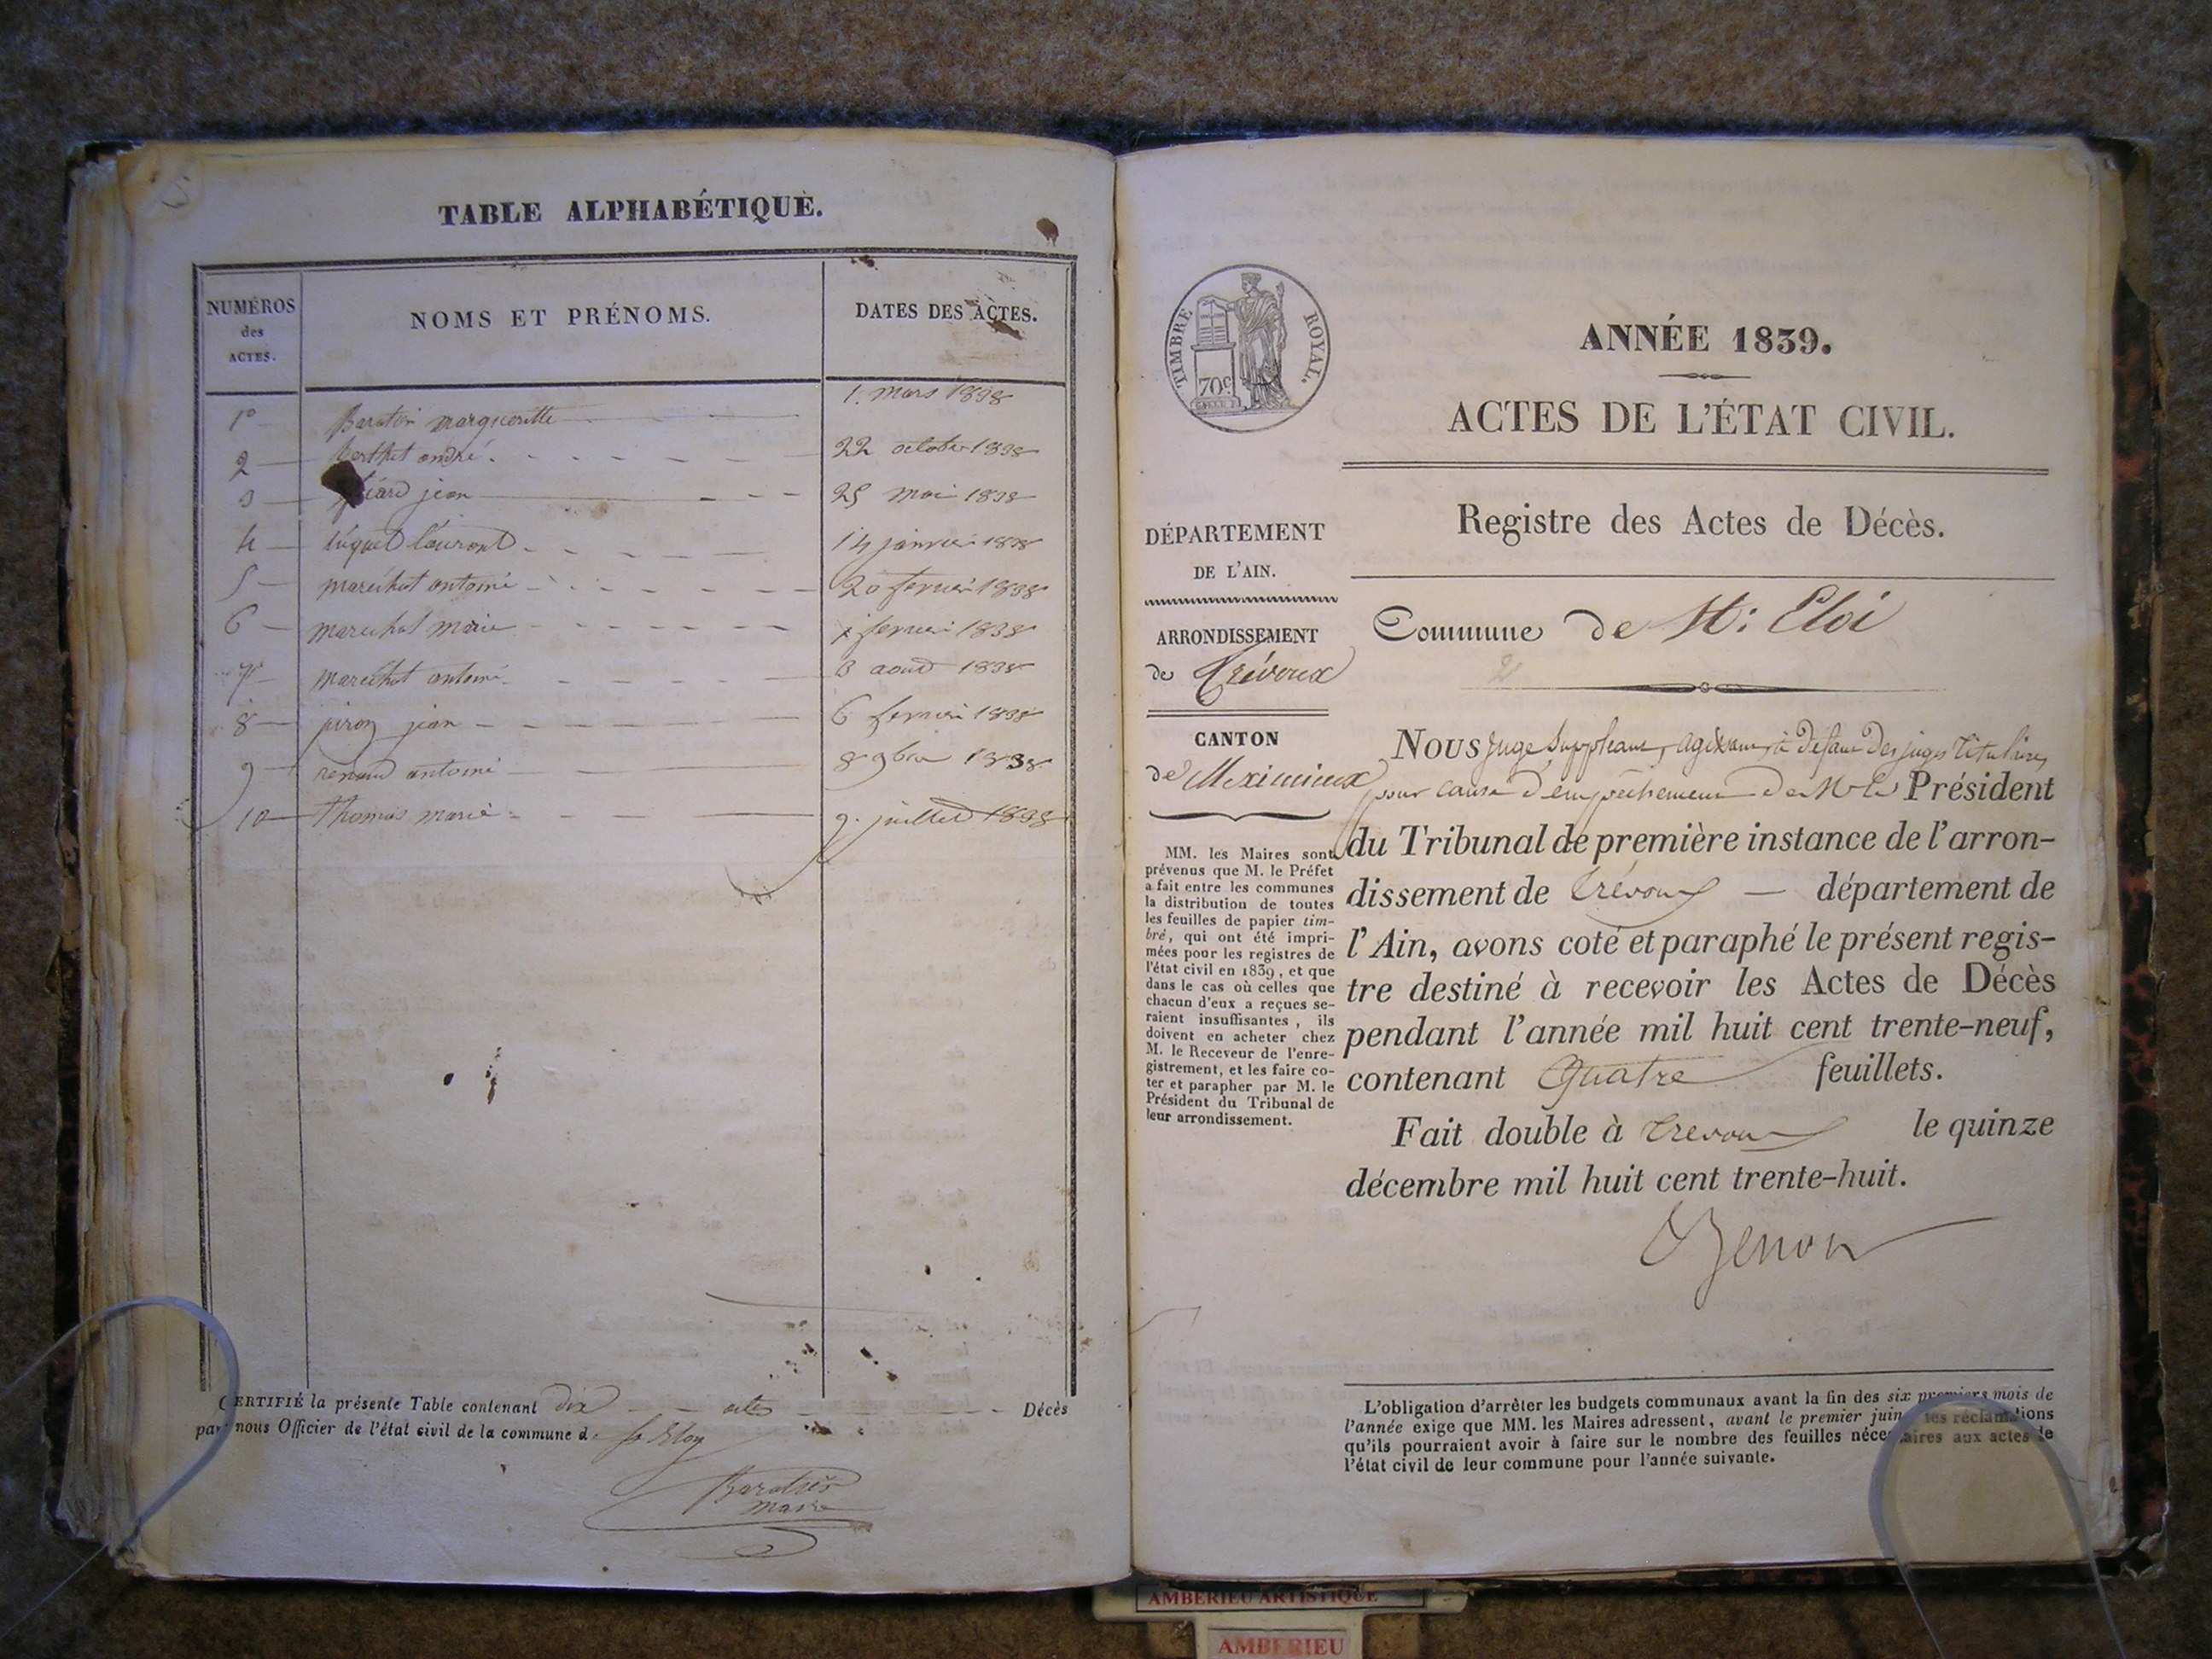 TABLE ALPHABÉTIQUE.
NUMÉROS
des
ACTES.
NOMS ET PRÉNOMS.
DATES DES ACTES.
1° margueritte 1. mars 1838
2 Berthet andré. 22 octobre 1838
3 jean 25 mai 1838
4 luquet laurent 14 janvier 1838
5 marechal antoine 20 fevrier 1838
6 marechal marie fevrier 1838
7 marechal antoine 3 aout 1838
8 piron jean 6 fevrier 1838
9 renaud antoine 8 9bre 1838
10 Thomas marie 9. juillet 1838
CERTIFIÉ la présente Table contenant dix actes Décès
par nous Officier de l'état civil de la commune d. St Eloy
maire
TIMBRE ROYAL.
70c
ANNÉE 1839.
ACTES DE L'ÉTAT CIVIL.
Registre des Actes de Décès.
DÉPARTEMENT
DE L'AIN.
ARRONDISSEMENT
de Trévoux
CANTON
de Meximieux
MM. les Maires sont
prévenus que M. le Préfet
a fait entre les communes
la distribution de toutes
les feuilles de papier tim-
bré, qui ont été impri-
mées pour les registres de
l'état civil en 1839, et que
dans le cas où celles que
chacun d'eux a reçues se-
raient insuffisantes, ils
doivent en acheter chez
M. le Receveur de l'enre-
gistrement, et les faire co-
ter et parapher par M. le
Président du Tribunal de
leur arrondissement.
Commune de St: Eloi
Nous juge Suppléant, agissant à défaut des juges titulaires,
pour cause d'empêchement de Mr le Président
du Tribunal de première instance de l'arron-
dissement de Trévoux — département de
l'Ain, avons coté et paraphé le présent regis-
tre destiné à recevoir les Actes de Décès
pendant l'année mil huit cent trente-neuf,
contenant Quatre feuillets.
Fait double à Trevoux le quinze
décembre mil huit cent trente-huit.
L'obligation d'arrêter les budgets communaux avant la fin des six premiers mois de
l'année exige que MM. les Maires adressent, avant le premier juin, les réclamations
qu'ils pourraient avoir à faire sur le nombre des feuilles nécessaires aux actes de
l'état civil de leur commune pour l'année suivante.
AMBERIEU ARTISTIQUE
AMBERIEU